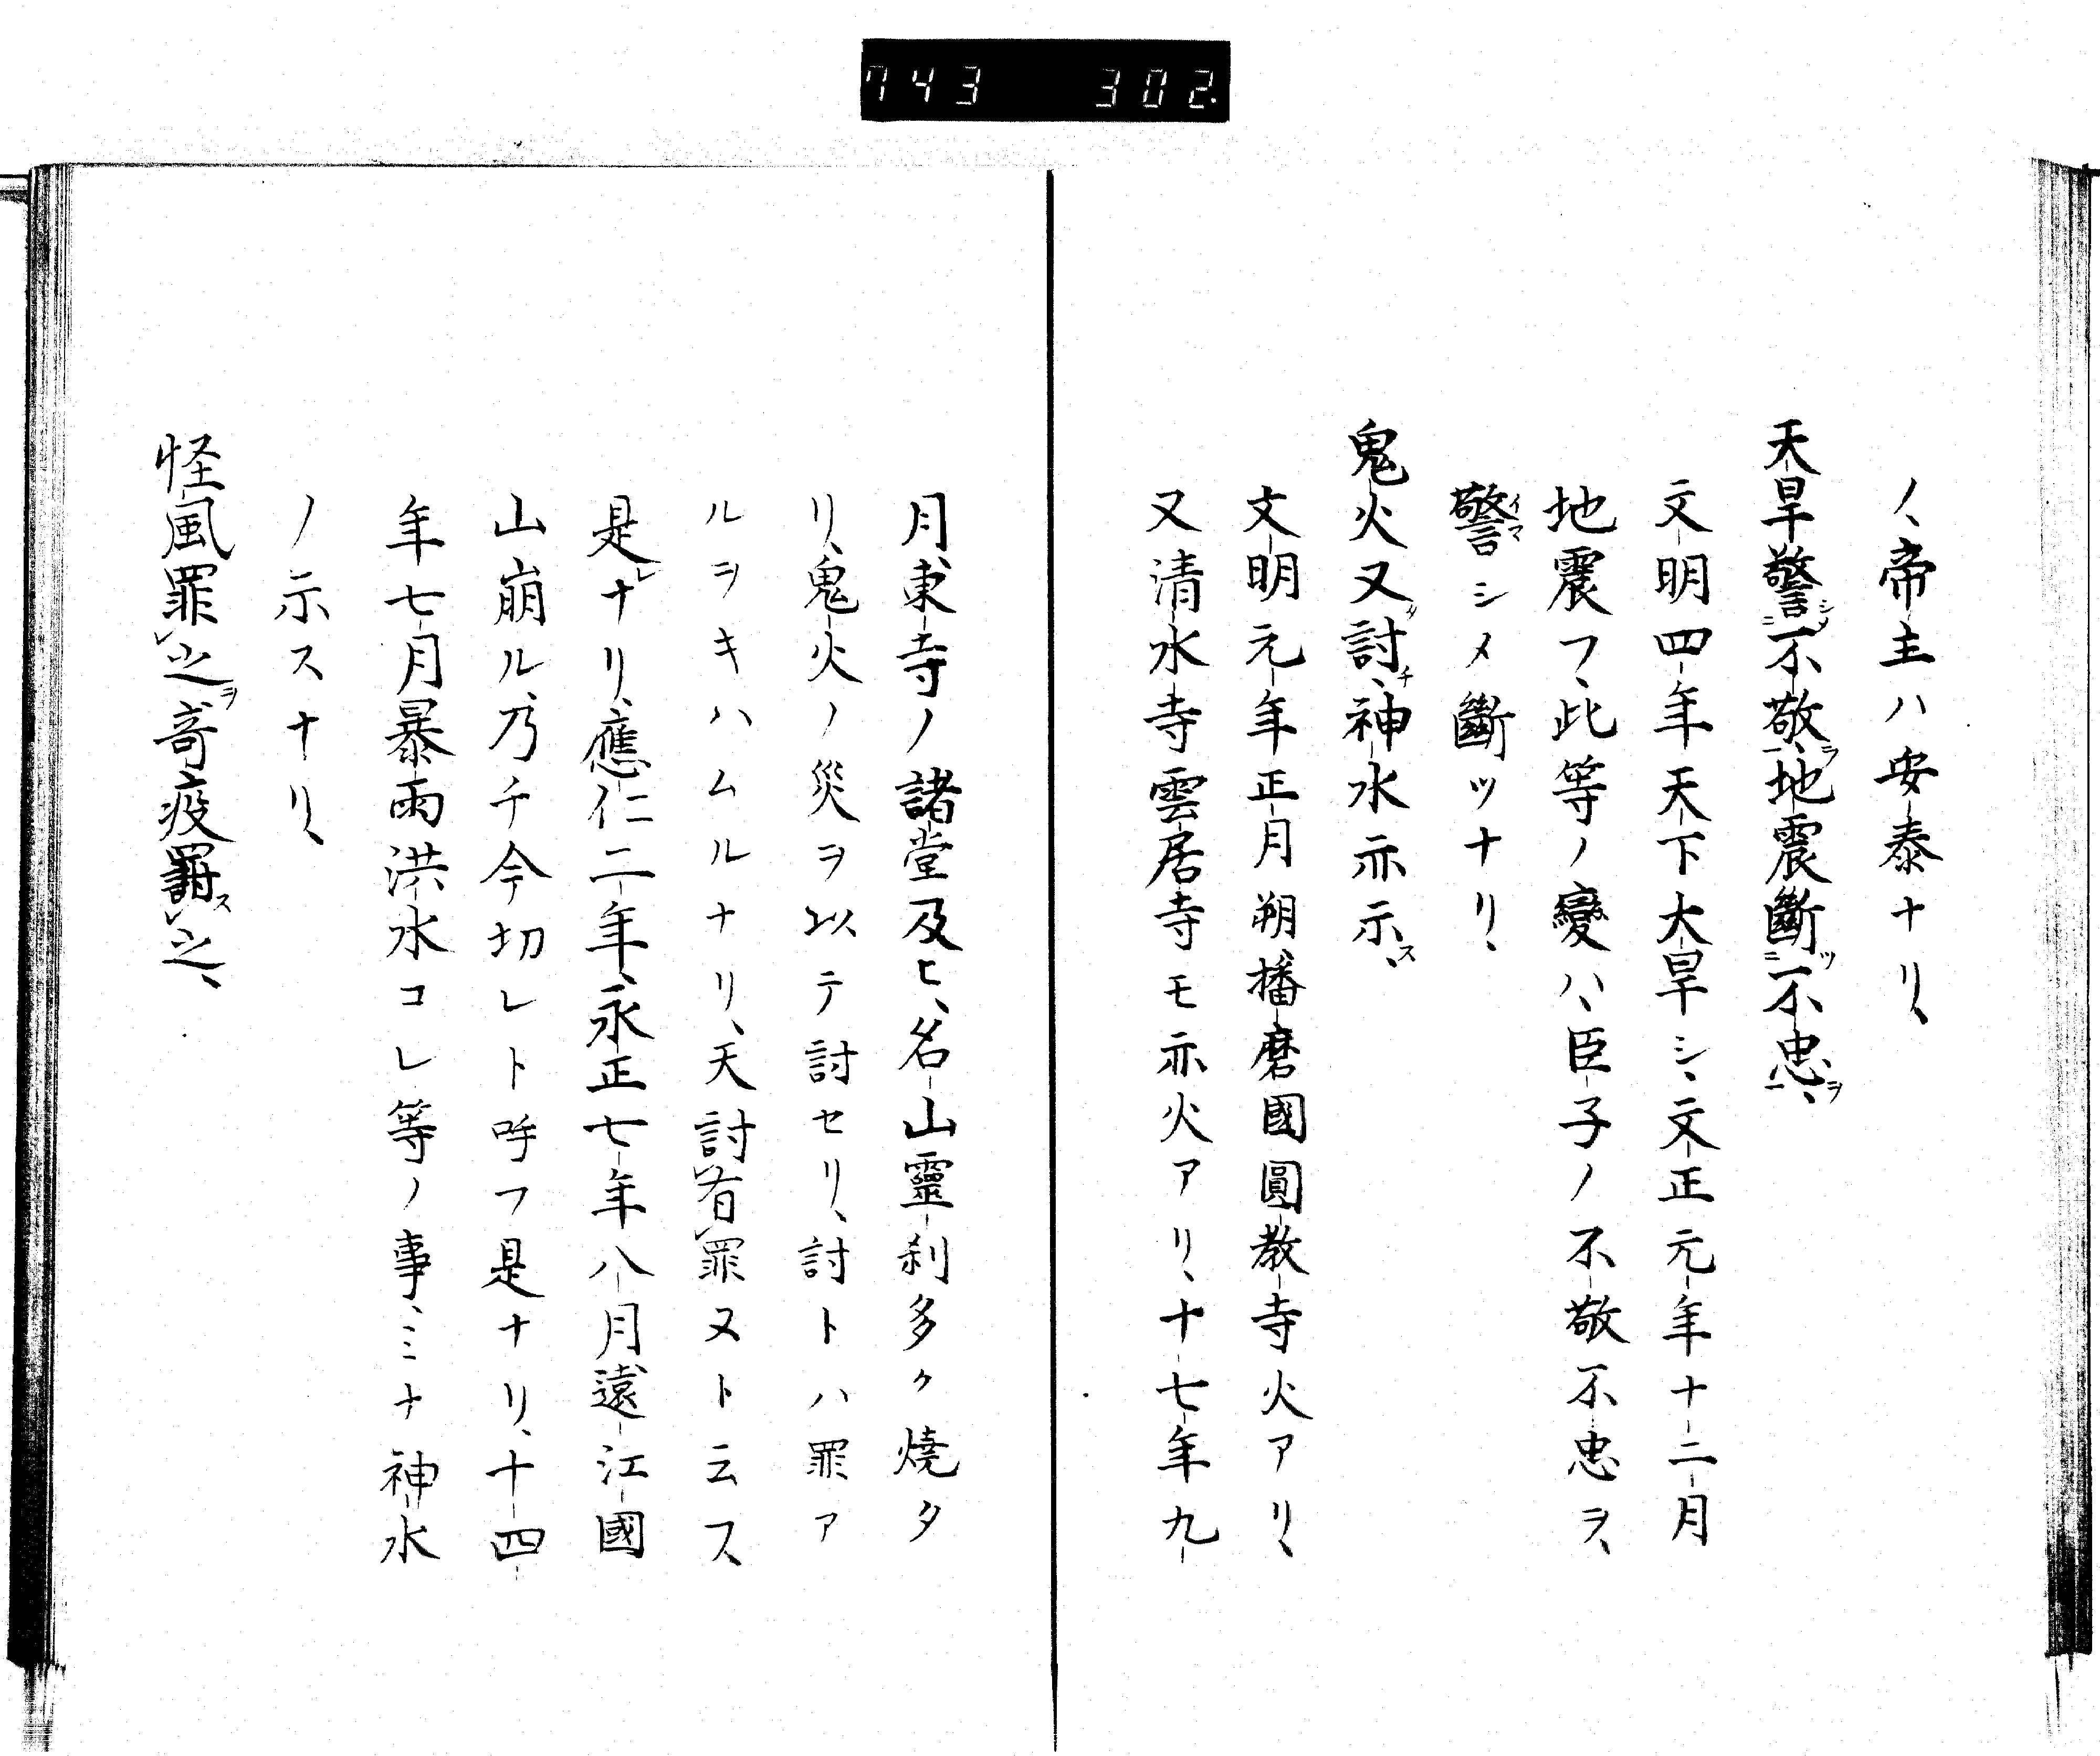 743 302
ノ、帝主ハ安泰ナリ、
天旱警シメ二不敬ヲ一、地震斷ツ二不忠ヲ一、
文明四年天下大旱シ、文正元年十二月
地震フ、此等ノ變ハ、臣子ノ不敬不忠ヲ、
警イマシメ斷ツナリ、
鬼火又タ討チ、神水亦示ス、
文明元年正月朔播磨國圓教寺火アリ、
又清水寺雲居寺モ亦火アリ、十七年九
月東寺ノ諸堂及ヒ、名山靈刹多ク燒タ
リ、鬼火ノ災ヲ以テ討セリ、討トハ罪ア
ルヲキハムルナリ、天討レ有レ罪ヌト云フ、
是レナリ、應仁二年、永正七年八月遠江國
山崩ル、乃チ今切レト呼フ是ナリ、十四
年七月暴雨洪水コレ等ノ事、ミナ神水
ノ示スナリ、
怪風罪レ之ヲ、奇疫罸スレ之、